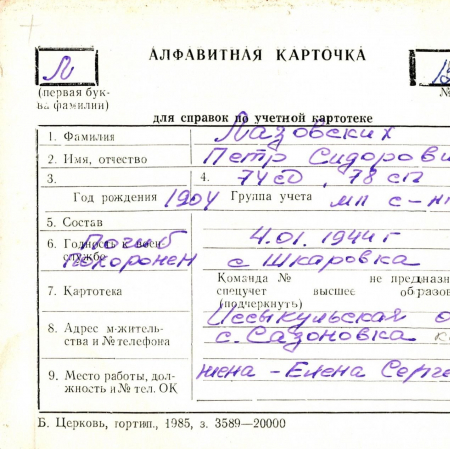 Л
АЛФАВИТНАЯ КАРТОЧКА
(первая бук-
ва фамилии)
№
для справок по учетной картотеке
1. Фамилия Лазовских
2. Имя, отчество Петр Сидорови
3. 4. 74 сд, 78 сп
Год рождения 1904 Группа учета мл с-нт
5. Состав
6. Годность к воен. Погиб 4.01.1944 г
службе Похоронен с Шкаровка
Команда № не предназн
7. Картотека спецучет высшее образов
(подчеркнуть)
8. Адрес м-житель- Иссыкульская о
ства и № телефона с. Сазоновка
9. Место работы, дол- жена - Елена Серге
жность и № тел. ОК
Б. Церковь, гортип., 1985, з. 3589—20000